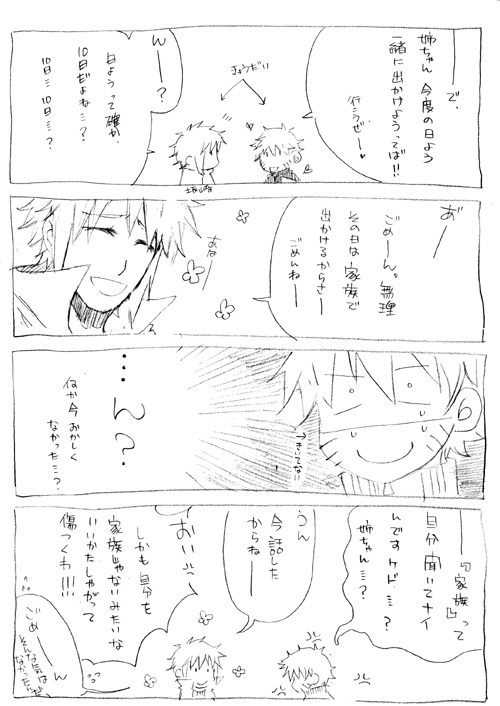 ーーで、
姉ちゃん 今度の日よう
一緒に出かけようってば!!
行こうぜー♥
きょうだい
んーー?
日ようって確か、
10日だよね…?
10日…10日…?
あーー
ごめーん。無理
その日は家族で
出かけるからさー
ごめんねー
あはー
→きいてない
…ん?
何か今おかしく
なかった…?
『家族』って
自分聞いてナイ
んですケド…?
姉ちゃん…?
うん
今話した
からねー
おいーー
しかも自分を
家族じゃないみたいな
いいかたしやがって
傷つくわ!!!!
ごめーーん
そんな気は
なかった